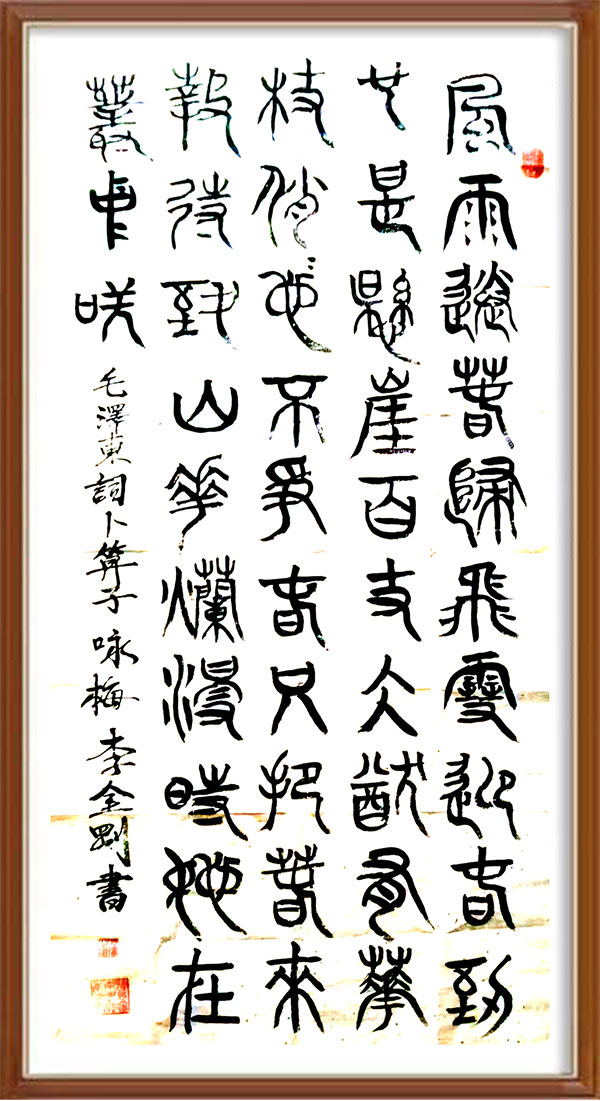 風雨送春歸飛雪迎春到
已是懸崖百丈仌猶有華
枝俏也不爭春只把春來
報待到山花爛漫時她在
叢中咲
毛澤東詞卜算子 咏梅 李金剛書